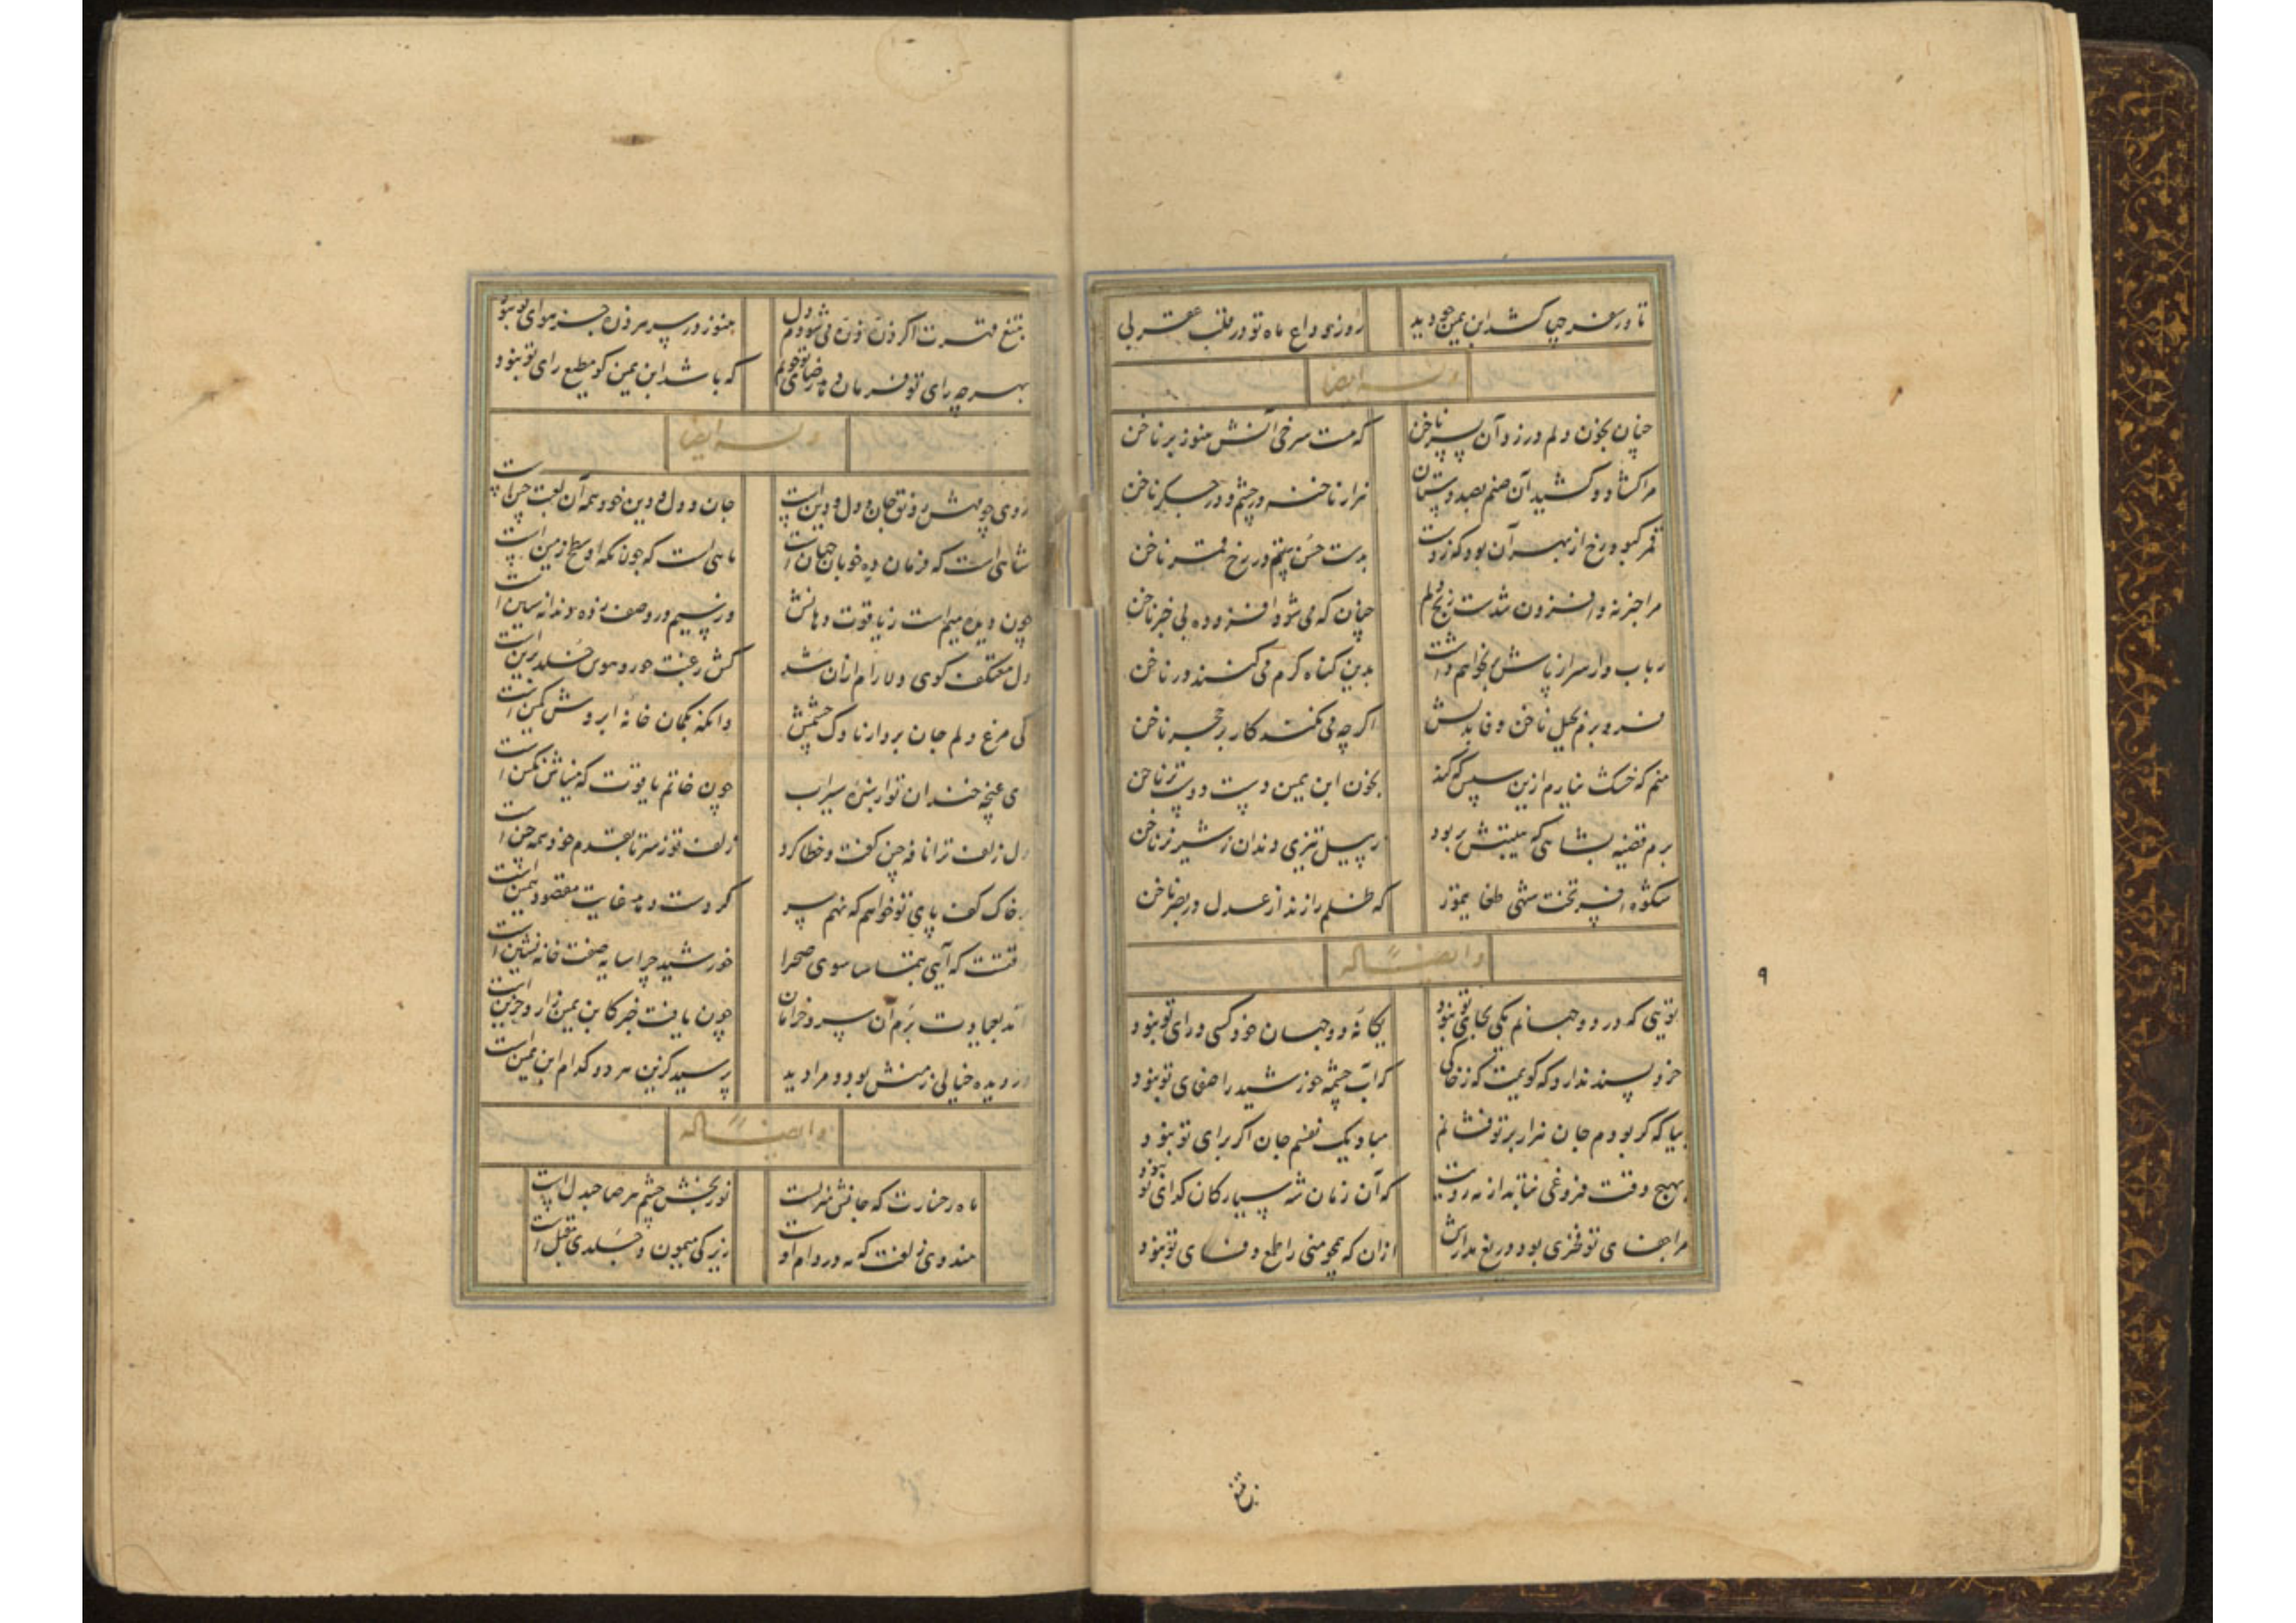 تا در سفر چها کشد ابن یمین چو دید
روز وداع ماه تو در قلب عقربی
وله ایضا
چنان بخون دلم در زد آن پسر ناخن
که هست سرخی آتش هنوز بر ناخن
مرا کشاد و کشید آن صنم بصد دستان
هزار ناخنه در چشم و در جگر ناخن
قمر کبود رخ از بهر آن بود که زدست
بدست حسن بتم در رخ قمر ناخن
مرا خبر نه و افزون شدست رنج دلم
چنان که می شود افزوده بی خبر ناخن
رباب وار سر از پاش بر نخواهم داشت
بدین گناه گرم می کنند در ناخن
فرو برم بحیل ناخن وفا بدلش
اگر چه می نکند کار بر حجر ناخن
منم که خشک نیارم ازین سپس که کند
بخون ابن یمین دست دوست تر ناخن
برم قضیه بشاهی که هیبتش بربود
ز پیل تیزی دندان ز شیر نر ناخن
شکوه افسر و تخت شهی طغایتمور
که ظلم را زند از عدل در بصر ناخن
و ایضا له
تویی که در دو جهانم یکی بجای تو نبود
یگانه دو جهان خود کسی ورای تو نبود
خرد پسند ندارد که گویمت که ز خاکی
که آب چشمه خورشید را صفای تو نبود
بیا که گر بودم جان هزار بر تو فشانم
مباد یک نفسم جان اگر برای تو نبود
بهیچ وقت فروغی نتابد از مه رویت
که آن زمان شه سیارگان گدای تو نبود
مرا جفای تو فخری بود دریغ مدارش
ازان که همچو منی را طمع وفای تو نبود
۹
بتیغ مهرت اگر ذره ذره می شودم دل
هنوز در سر هر ذره جز هوای تو نبود
بهر چه رای تو فرمان دهد رضای تو جویم
که باشد ابن یمین کو مطیع رای تو نبود
وله ایضا
روی چو مهش رونق جان و دل و دین است
جان و دل و دین خود همه آن لعبت چین است
شاهی است که فرمان ده خوبان جهان است
ماهی است که جولانگه او سطح زمین است
چون دیده میم است ز یاقوت دهانش
در سیم در وصف زده دندانه سین است
دل معتکف کوی دلارام ازان شد
کش رغبت حور و هوس خلد برین است
کی مرغ دلم جان برد از ناوک چشمش
وانگه بکمان خانه ابروش کمین است
ای غنچه خندان تو از سبزه سیراب
چون خاتم یاقوت که میناش نگین است
دل زلف ترا نافه چین گفت و خطا کرد
زلف تو ز سر تا بقدم خود همه چین است
بر خاک کف پای تو خواهم که نهم سر
گر دست دهد غایت مقصود همین است
وقتست که آیی بتماشا سوی صحرا
خورشید چرا سایه صفت خانه نشین است
آمد بعیادت برم آن سرو خرامان
چون یافت خبر کابن یمین زار و حزین است
در دیده خیالی ز منش بود و مرا دید
پرسید کزین هر دو کدام ابن یمین است
و ایضا له
ماه رخسارت که جانش منزلست
نور بخش چشم هر صاحبدل است
هندوی زلفت که مه در دام او
زیرکی میمون و جلدی مقبل است